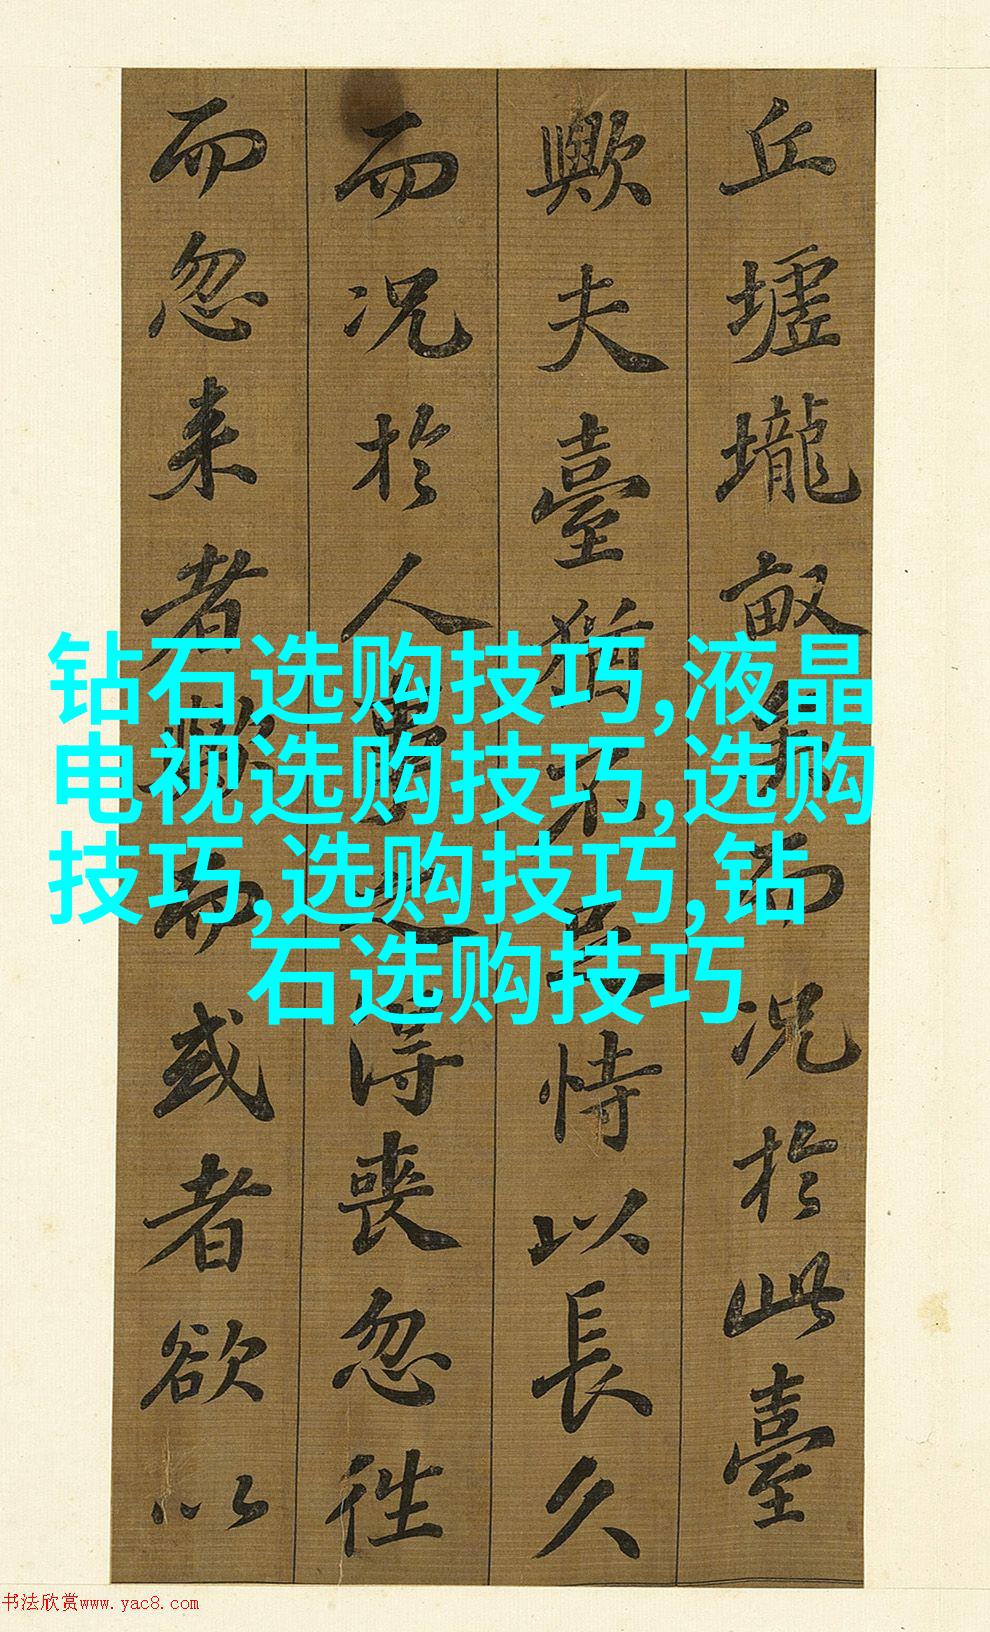 丘墟壠畝矣而况於此臺
歟夫臺猶不足恃以長久
而况於人事之得喪忽往
而忽来者歟而或者欲以
钻石选购技巧,液晶
电视选购技巧,选购
技巧,选购技巧,钻
石选购技巧
书法欣赏www.yac8.com